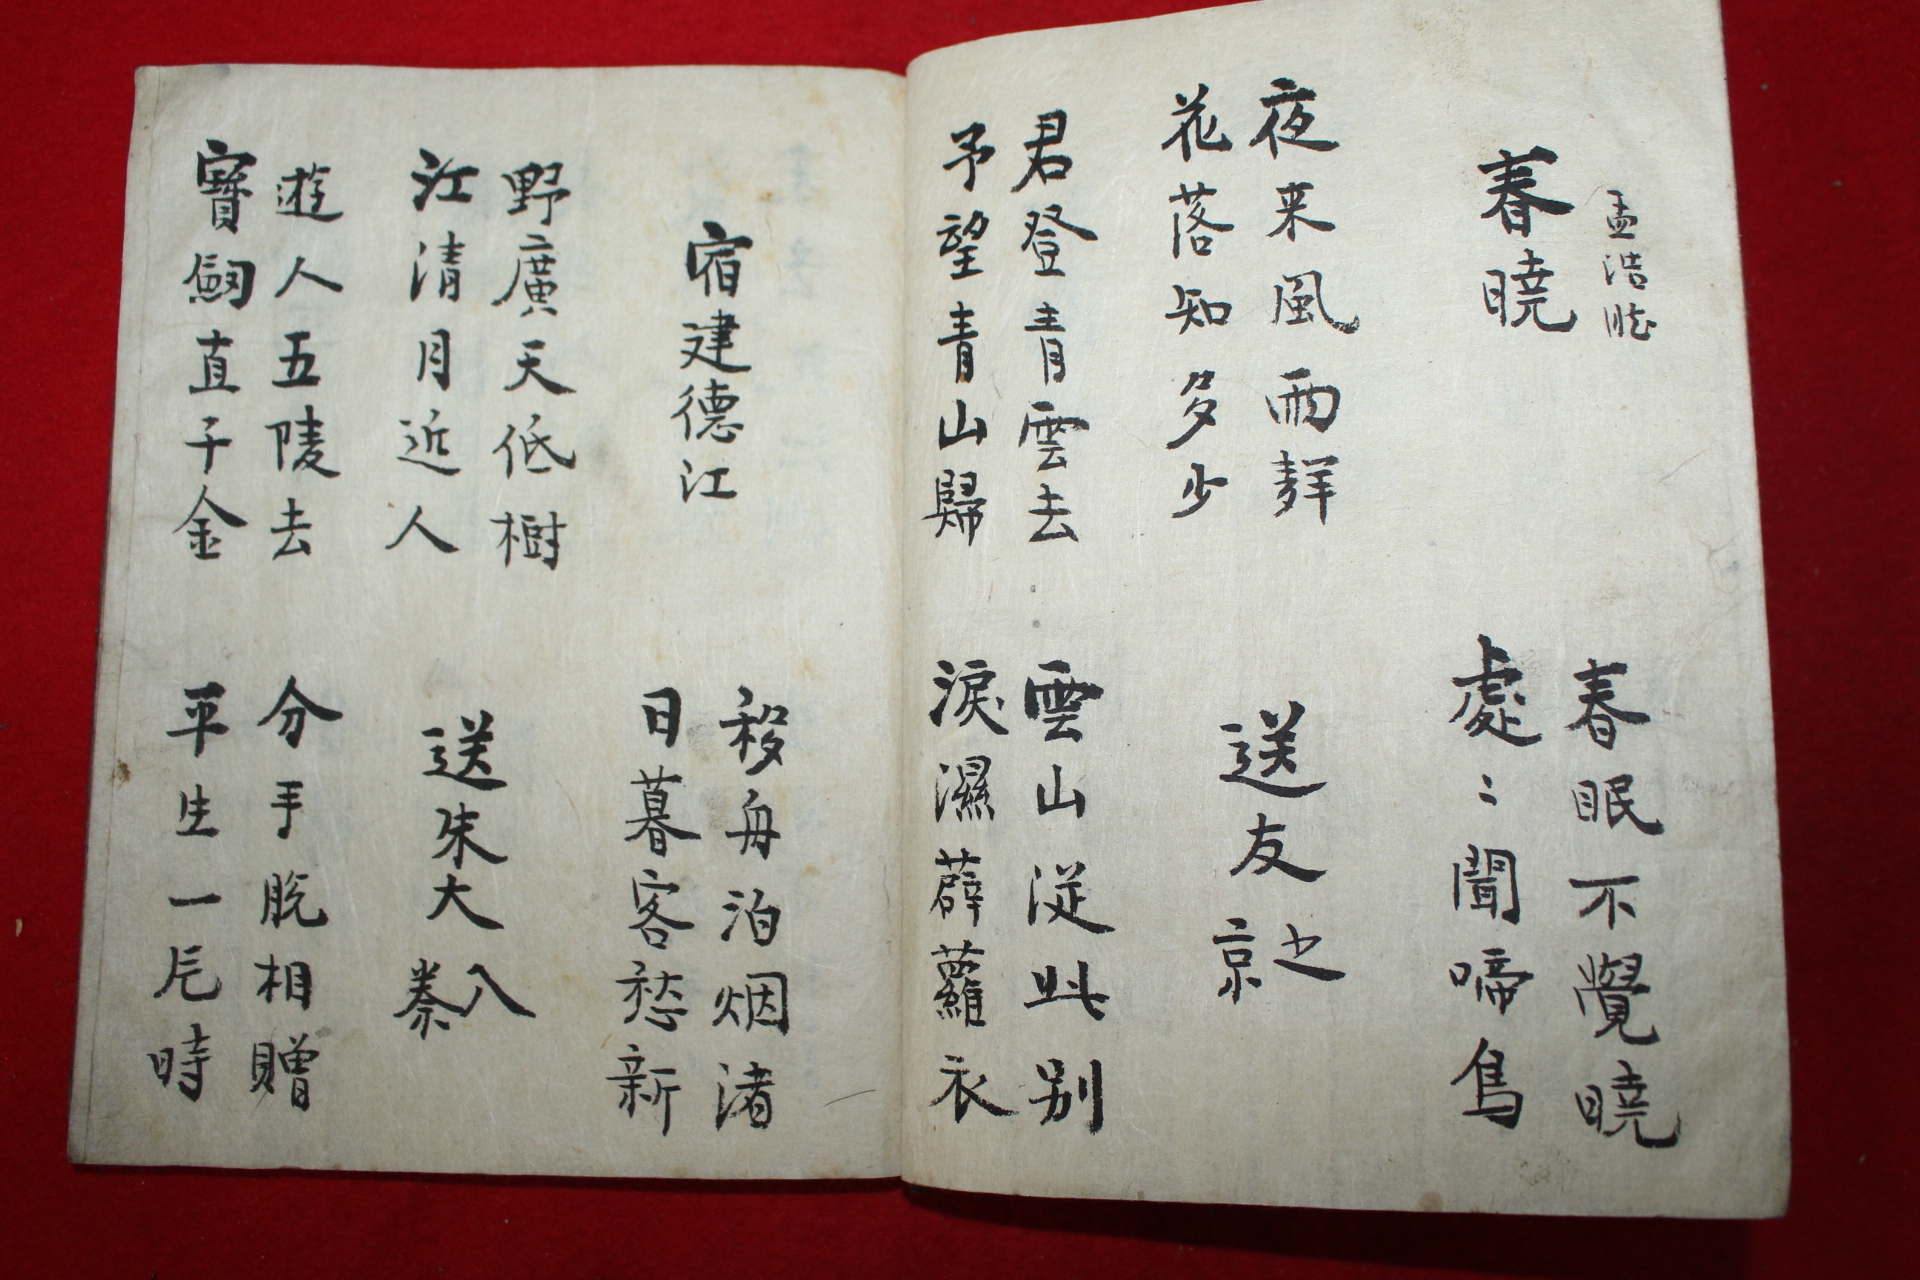 孟浩然
春曉
春眠不覺曉
處〻聞啼鳥
夜来風雨聲
花落知多少
送友之京
君登青雲去
予望青山歸
雲山從此別
淚濕薜蘿衣
宿建德江
移舟泊烟渚
日暮客愁新
野廣天低樹
江清月近人
送朱大八秦
遊人五陵去
寶劒直千金
分手脫相贈
平生一片時